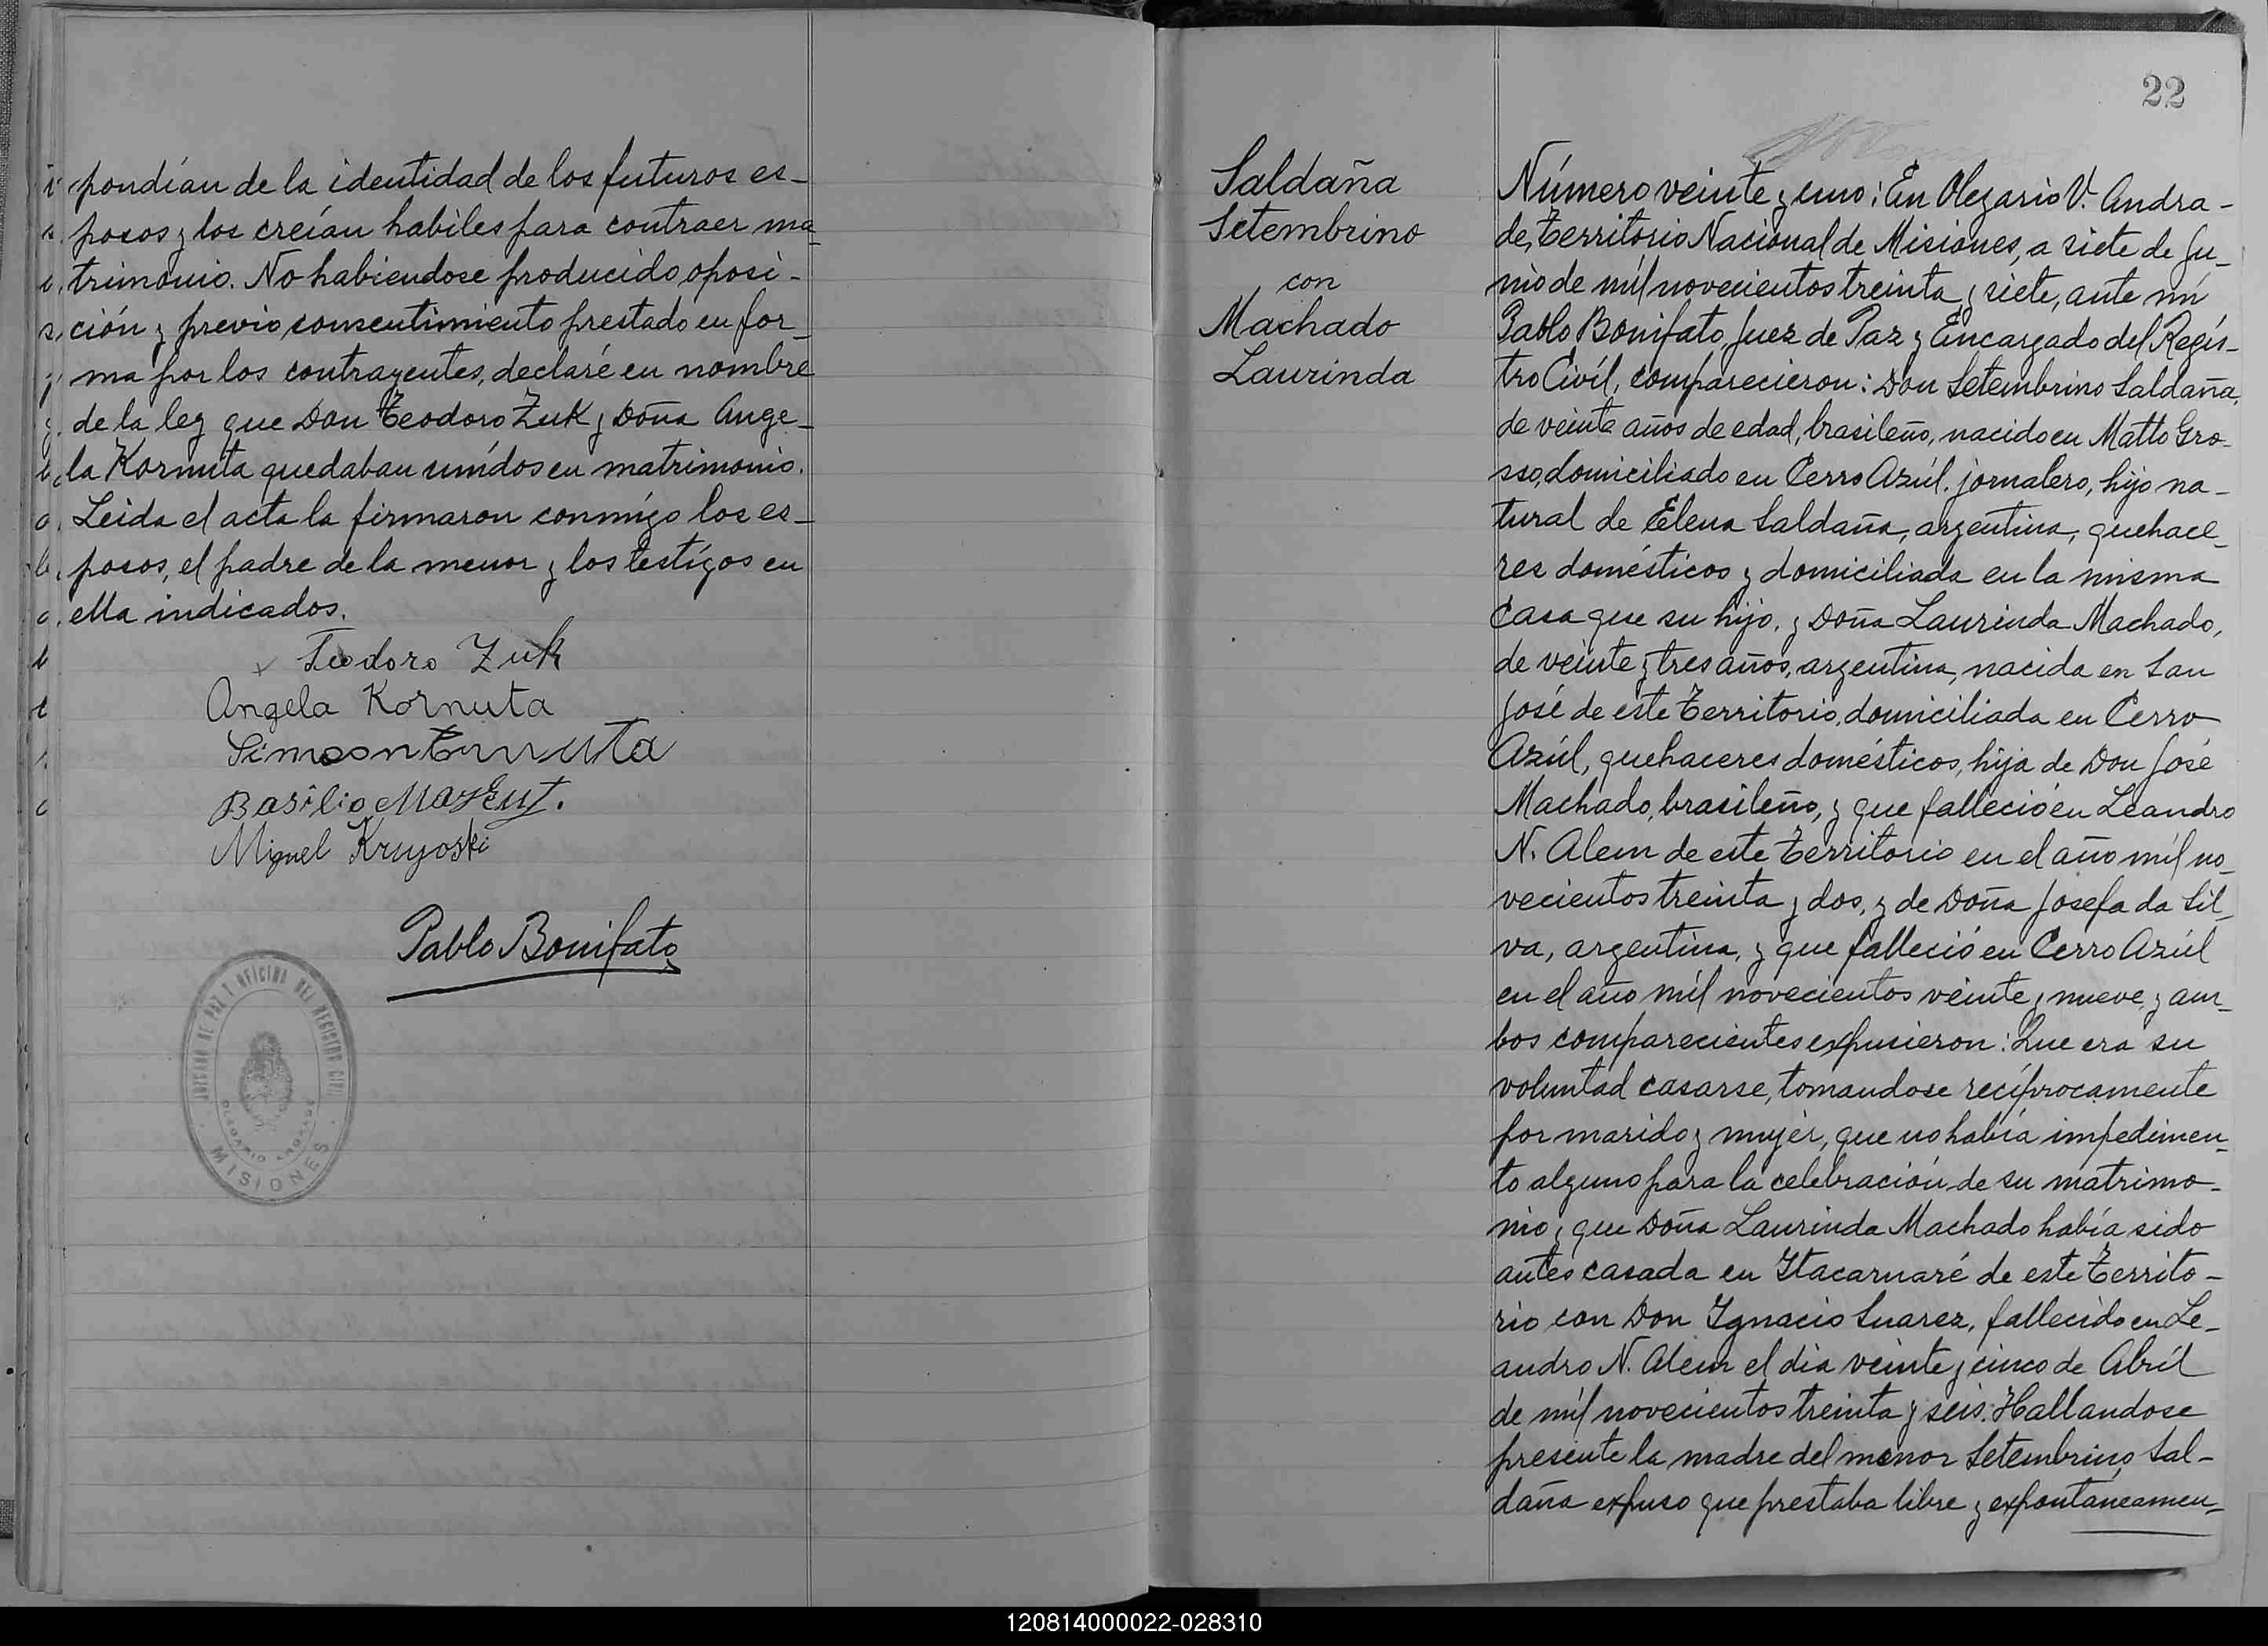 pondían de la identidad de los futuros es-
posos y los creían habiles para contraer ma-
trimonio. No habiendose producido oposi-
ción y previo consentimiento prestado en for-
ma por los contrayentes, declaré en nombre
de la ley que Don Teodoro Zuk y Doña Ange-
la Kornuta quedaban unídos en matrimonio.
Leida el acta la firmaron conmígo los es-
posos, el padre de la menor y los testígos en
ella indicados.
Teodoro Zuk
Angela Kornuta
Simeon
Basilio
Miguel Kruyoski
Pablo Bonifato
JUZGADO DE PAZ Y OFICINA DEL REGISTRO CIVIL
OLEGARIO ANDRADE
MISIONES
22
Saldaña
Setembrino
con
Machado
Laurinda
Número veinte y uno: En Olegario V. Andra-
de, Territorio Nacional de Misiones, a siete de Ju-
nio de mil novecientos treinta y siete, ante mí
Pablo Bonifato, Juez de Paz y Encargado del Regís-
tro Civíl, comparecieron: Don Setembrino Saldaña,
de veinte años de edad, brasileño, nacido en Matto Gro-
sso, domiciliado en Cerro Azúl. jornalero, hijo na-
tural de Elena Saldaña, argentina, quehace-
res domésticos y domiciliada en la misma
casa que su hijo, y Doña Laurinda Machado,
de veinte y tres años, argentina, nacida en San
José de este Territorio, domiciliada en Cerro
Azúl, quehaceres domésticos, hija de Don José
Machado, brasileño, y que falleció en Leandro
N. Alem de este Territorio en el año míl no-
vecientos treinta y dos, y de Doña Josefa da Sil-
va, argentina, y que falleció en Cerro Azúl
en el año míl novecientos veinte y nueve, y am-
bos comparecientes expusieron: Que era su
voluntad casarse, tomandose recíprocamente
por marido y mujer, que no había impedimen-
to alguno para la celebración de su matrimo-
nio, que Doña Laurinda Machado había sido
antes casada en Itacaruaré de este Territo-
rio con Don Ignacio Suarez, fallecido en Le-
andro N. Alem el día veinte y cinco de Abríl
de mil novecientos treinta y seis. Hallandose
presente la madre del menor Setembrino Sal-
daña expuso que prestaba libre y expontáneamen-
120814000022-028310